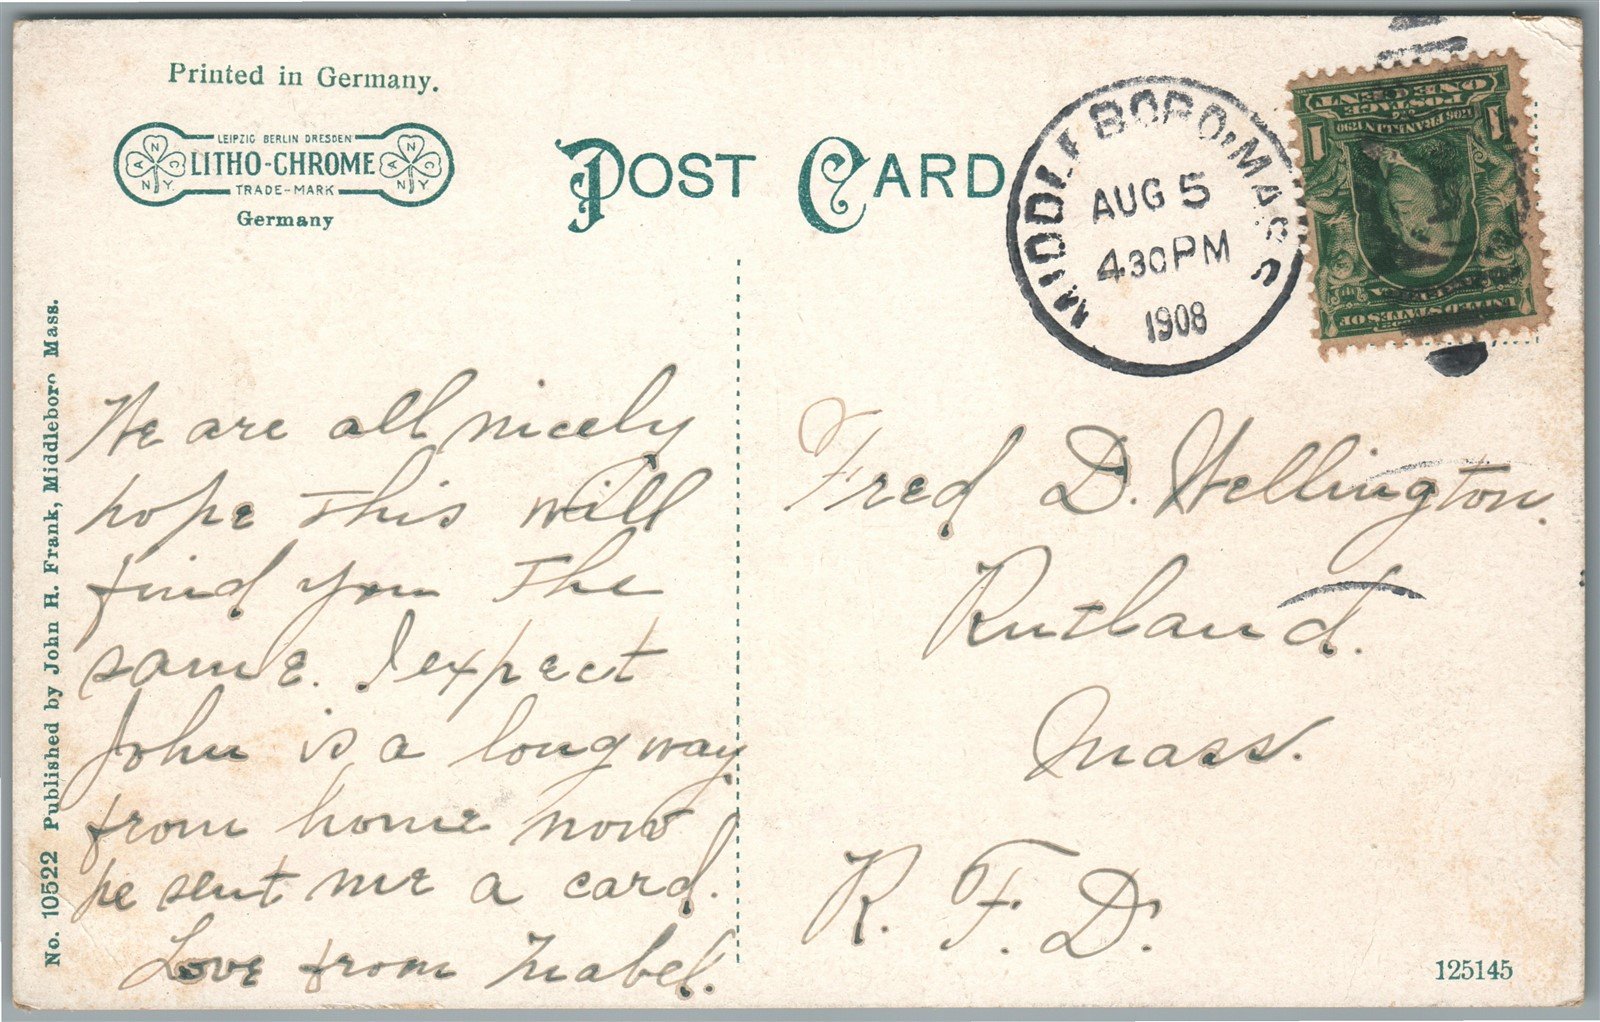 Printed in Germany.
LEIPZIG BERLIN DRESDEN
LITHO-CHROME
TRADE-MARK
A N C N.Y.
A N C N.Y.
Germany
POST CARD
MIDDLEBORO, MASS
AUG 5
430PM
1908
ONE CENT
POSTAGE
1706 FRANKLIN 1790
1 1
UNITED STATES OF
We are all nicely
hope this will
find you the
same. I expect
John is a long way
from home now
he sent me a card.
Love from Mabel.
Fred D. Wellington.
Rutland.
Mass.
R. F. D.
No. 10522 Published by John H. Frank, Middleboro Mass.
125145